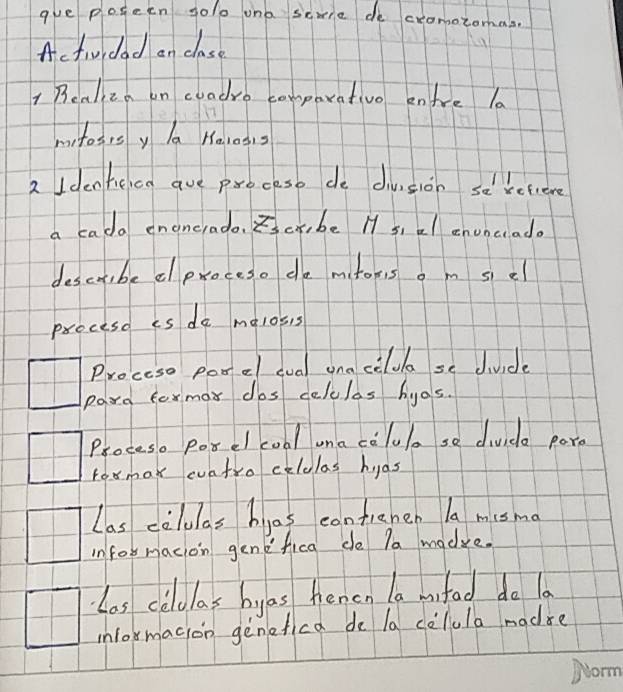 que poseen solo una serie de cromozomas.
Actividad en clase
1 Realiza un cuadro comparativo entre la
mitosis y la Meiosis
2 Identifica que proceso de división se refiere
a cada enunciado. Escribe M si el enunciado
describe el proceso de mitosis o m si el
proceso es de meiosis
Proceso por el cual una célula se divide
para formar dos celulas hijas.
Proceso por el cual una célula se divide para
formar cuatro celulas hijas
Las células hijas contienen la misma
información genética de la madre.
Las células hijas tienen la mitad de la
información génetica de la célula madre
Norm